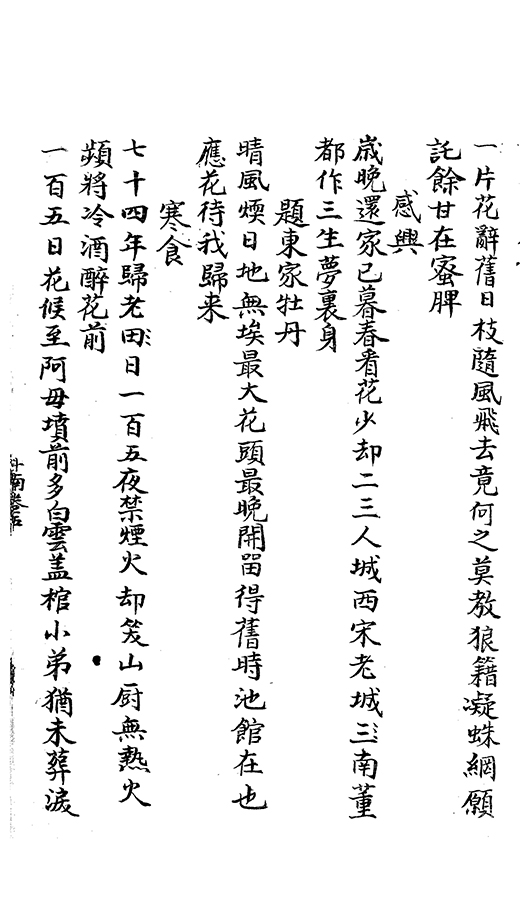 一片花辭舊日枝隨風飛去竟何之莫教狼籍凝蛛網願
託餘甘在蜜脾
感興
歲晚還家已暮春看花少却二三人城西宋老城三南董
都作三生夢裏身
題東家牡丹
晴風煖日地無埃最大花頭最晚開留得舊時池館在也
應花待我歸来
寒食
七十四年歸老田日一百五夜禁煙火却笑山厨無熱火
頻將冷酒醉花前
一百五日花候至阿母墳前多白雲盖棺小弟猶未葬淚